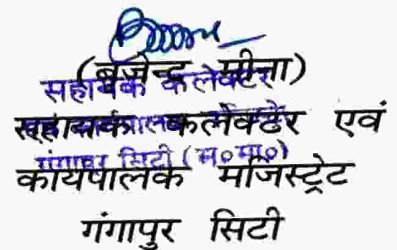 (बृजेन्द्र मीना)
सहायक कलेक्टर
सहायक कलेक्टर एवं
गंगापुर सिटी (स०मा०)
कार्यपालक मजिस्ट्रेट
गंगापुर सिटी